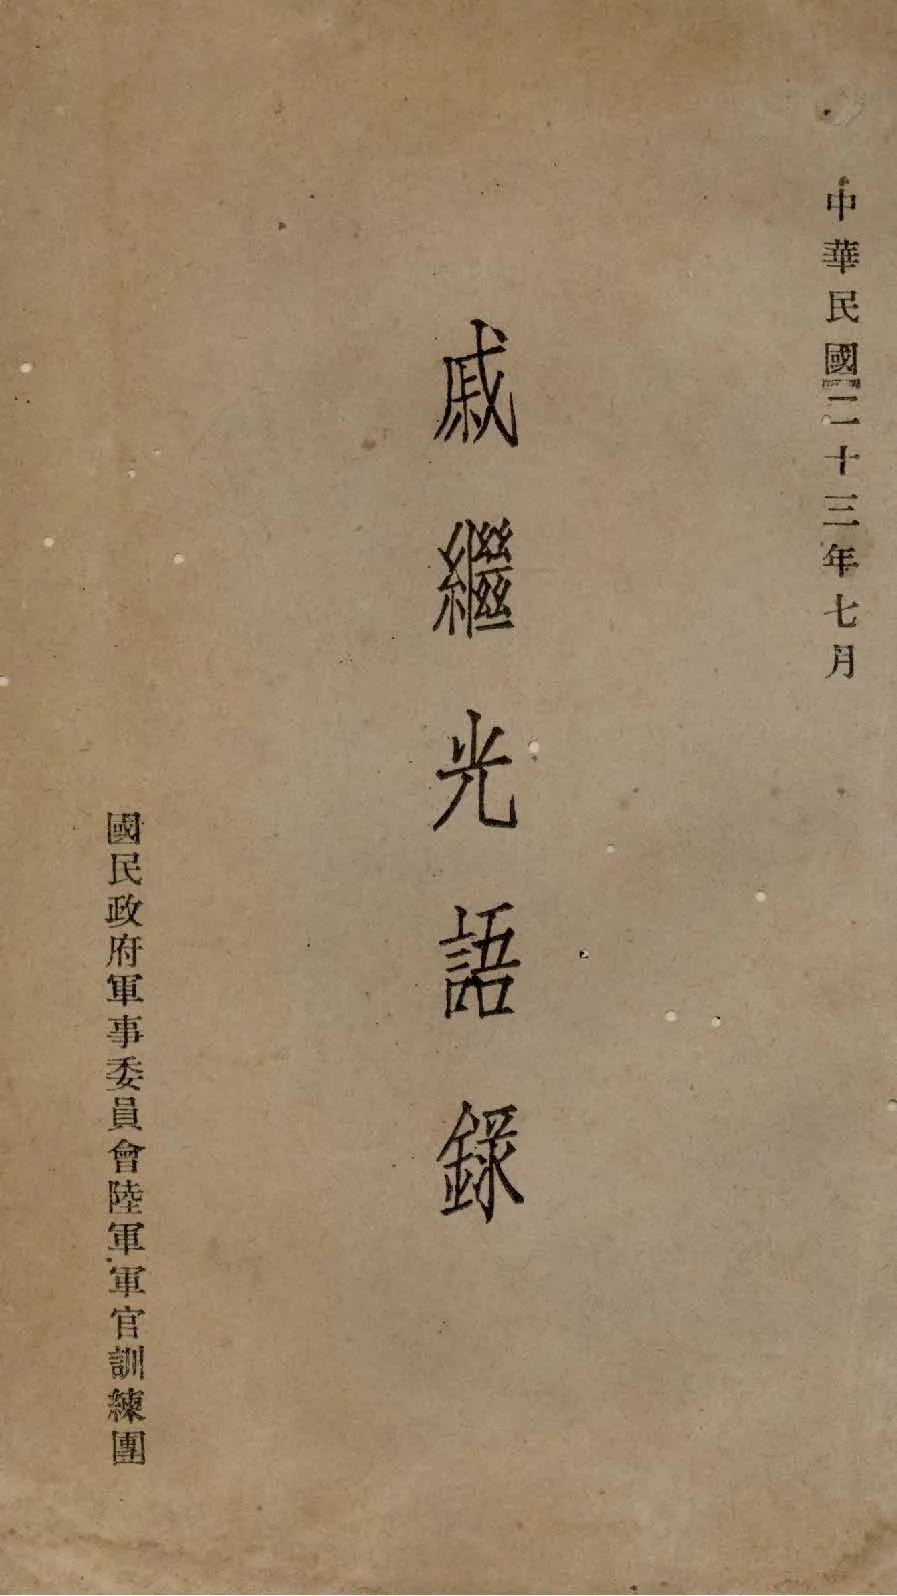 中華民國二十三年七月
戚繼光語錄
國民政府軍事委員會陸軍軍官訓練團